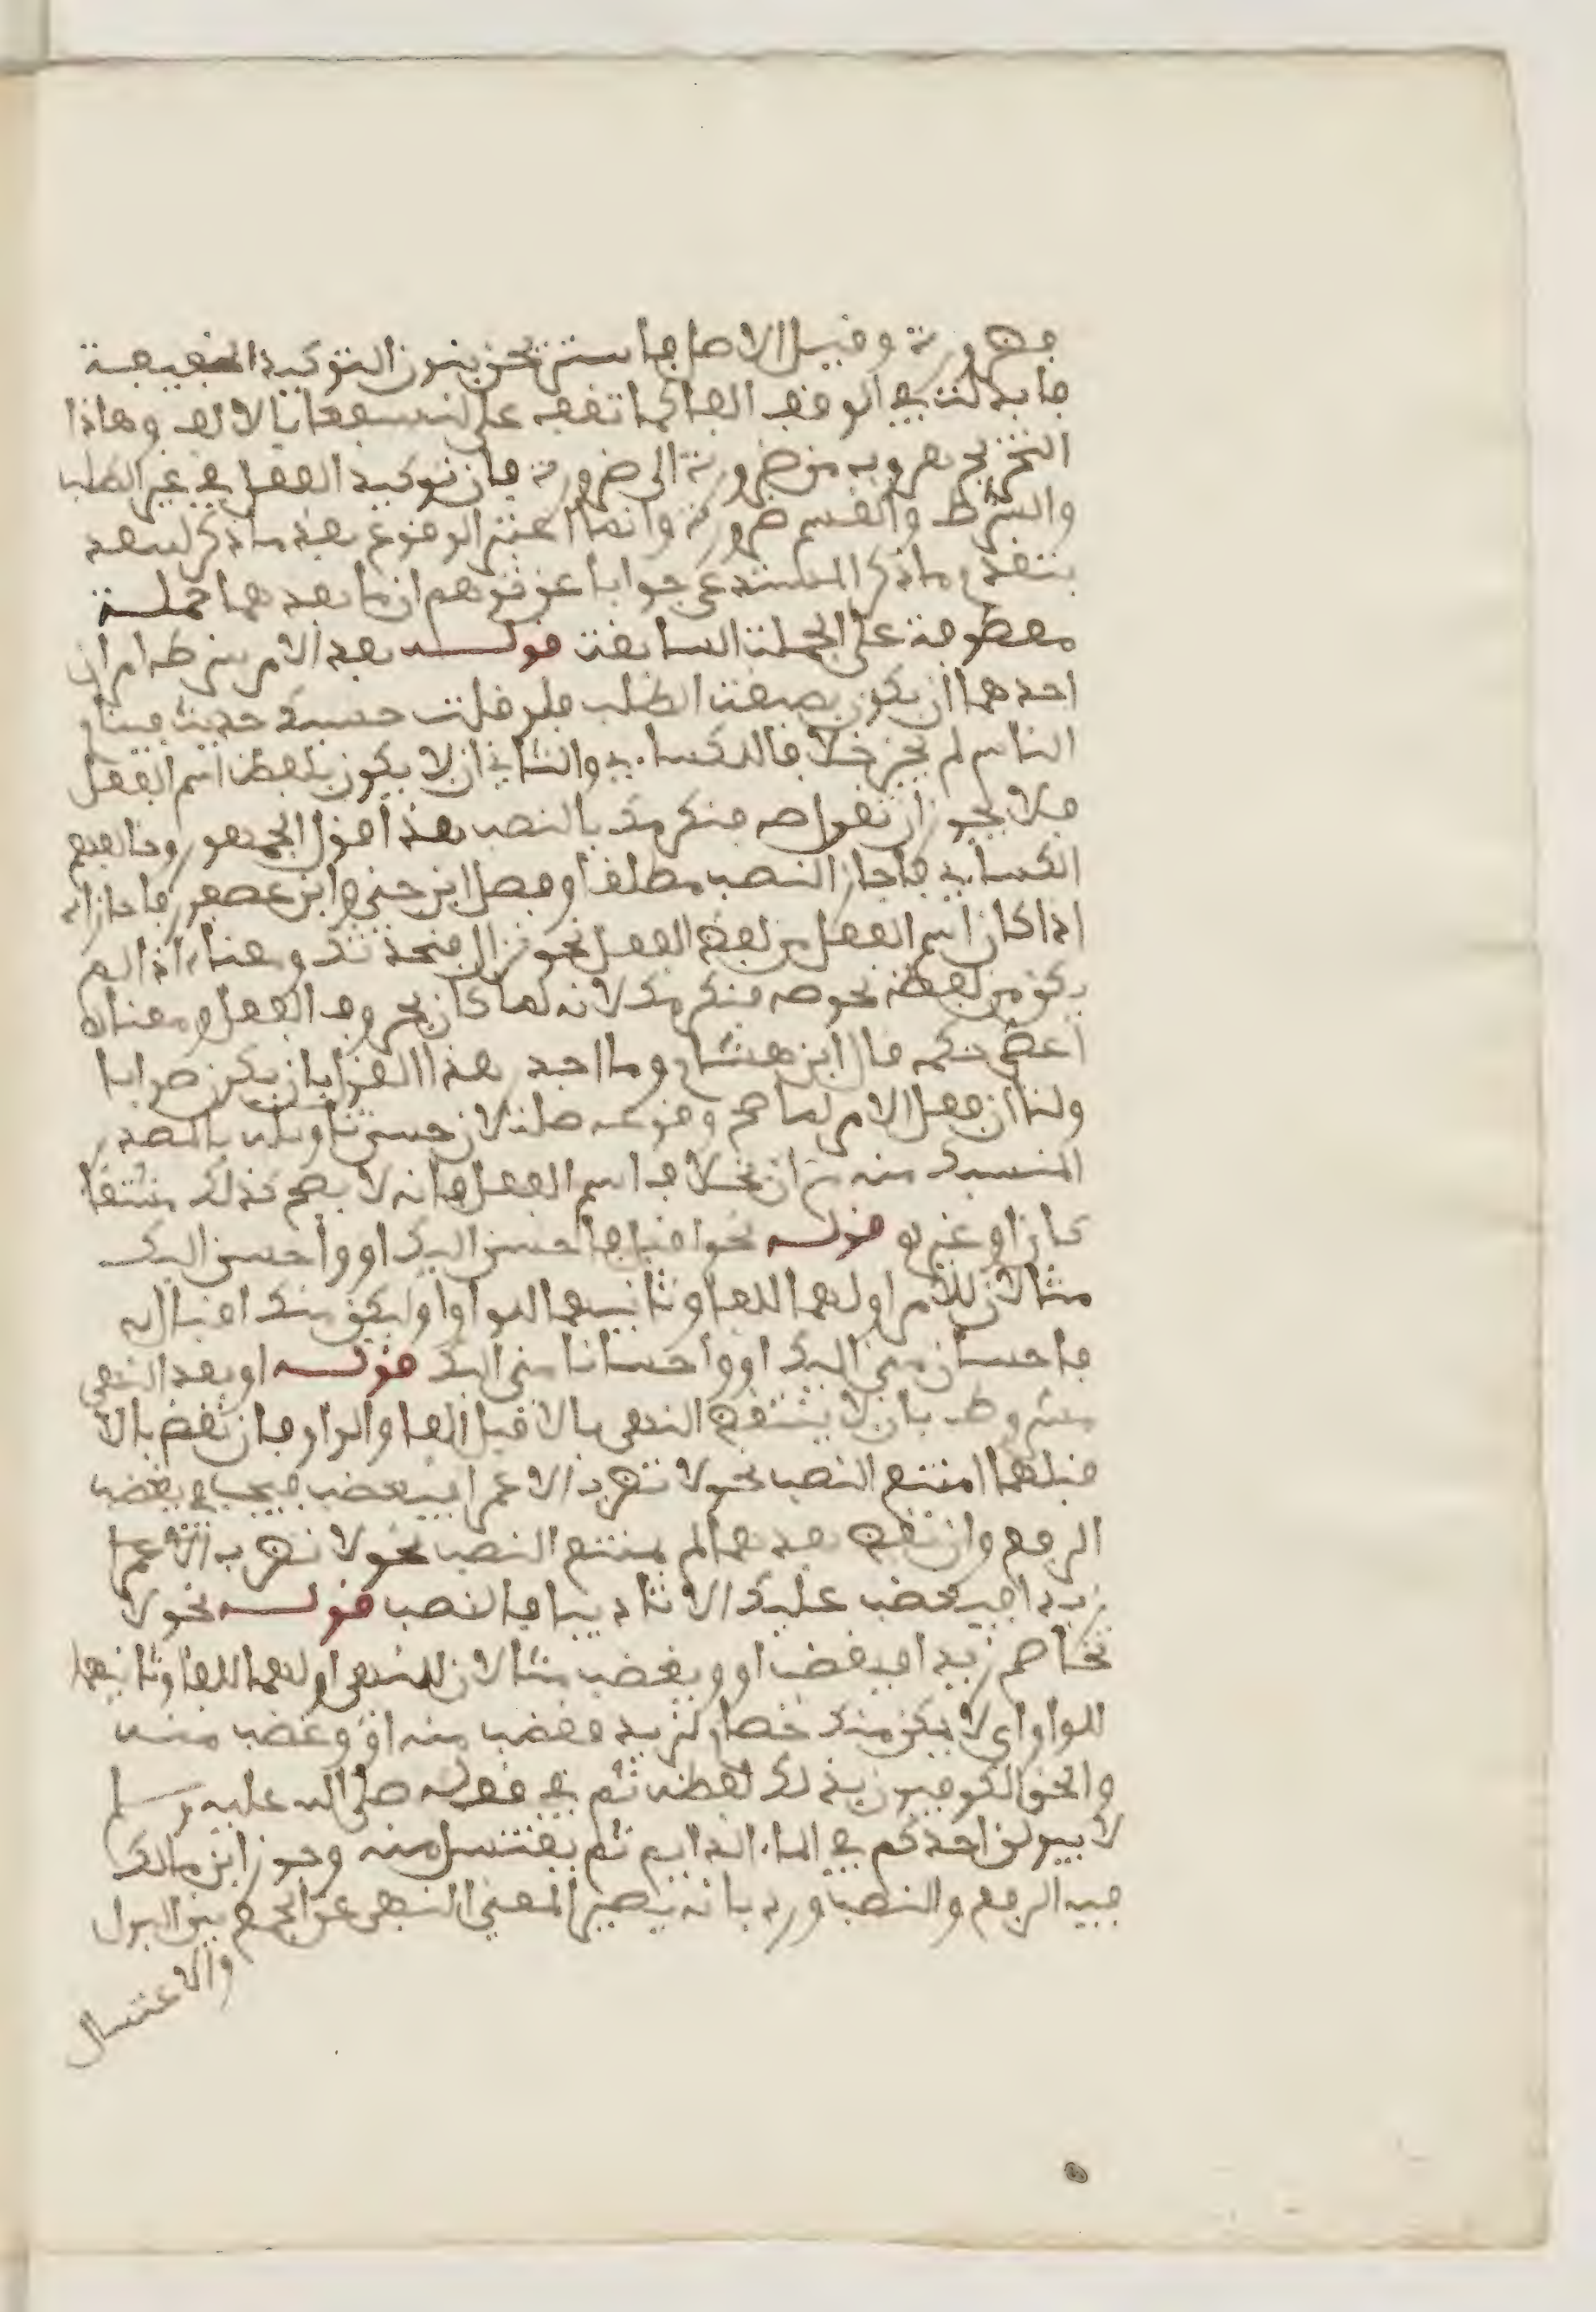 فضرورة وقيل الاصل فاستريحن بنون التوكيد الخفيفة
فابدلت في الوقف الفا كما تقف على لنسفعا بالالف وهاذا
التخريج هروب من ضرورة الى ضرورة فان توكيد الفعل في غير الطلب
والشرط والقسم ضرورة وانما اعتبر الوقوع بعد ما ذكر لبعد
بتقدم ما ذكر المستدعي جوابا عن توهم ان ما بعدهما جملة
معطوفة على الجملة السابقة قوله بعد الامر بشرطه امران
احدهما ان يكون بصيغة الطلب فلو قلت حسبك حديث فينام
الناس لم يجز خلافا للكسايي والثاني ان لا يكون بلفظ اسم الفعل
فلا يجوز ان تقول صه فنكرمك بالنصب هذا قول الجمهور وخالفهم
الكسايي فاجاز النصب مطلقا وفصل ابن جني وابن عصفور فاجازاه
اذا كان اسم الفعل من لفظ الفعل نحو نزال فنحدثك ومنعاه اذا لم
يكن من لفظه نحو صه فنكرمك لانه لما كان بحروف الفعل ومعناه
اعطي حكمه قال ابن هشام وما اجدر هذا القول بان يكون صوابا
ولنا ان فعل الامر لما صح وقوعه صلة لان حسن تاويله بالمصدر
المنسبك منه من ان بخلاف اسم الفعل فانه لا يصح ذلك مشتقا
كان او غيره قوله نحو اقبل فاحسن اليك او واحسن اليك
مثالان للامر اولهما للفا وثانيهما للواو اي ليكن منك اقبال
فاحسان مني اليك او واحسانا مني اليك قوله او بعد النفي
مشروط بان لا ينتقض النفي بالا قبل الفا والواو فان نقض بالا
قبلهما امتنع النصب نحو لا تضرب الا عمرا فيغضب فيجب في يغضب
الرفع وان نقض بعدهما لم يمتنع النصب نحو لا تضرب الا عمرا
زيدا فيغضب عليك الا تاديبا فالنصب قوله نحو لا
تخاصم زيدا فيغضب او ويغضب مثالان للنهي اولهما للفا وثانيهما
للواو اي لا يكن منك خصام لزيد فغضب منه او وغضب منه
والحق الكوفيون بذلك لفظة ثم في قوله صلى الله عليه وسلم
لا يبولن احدكم في الماء الدايم ثم يغتسل منه وجوز ابن مالك
فيه الرفع والنصب ورد بانه يصير المعنى النهي عن الجمع بين البول
والاغتسال